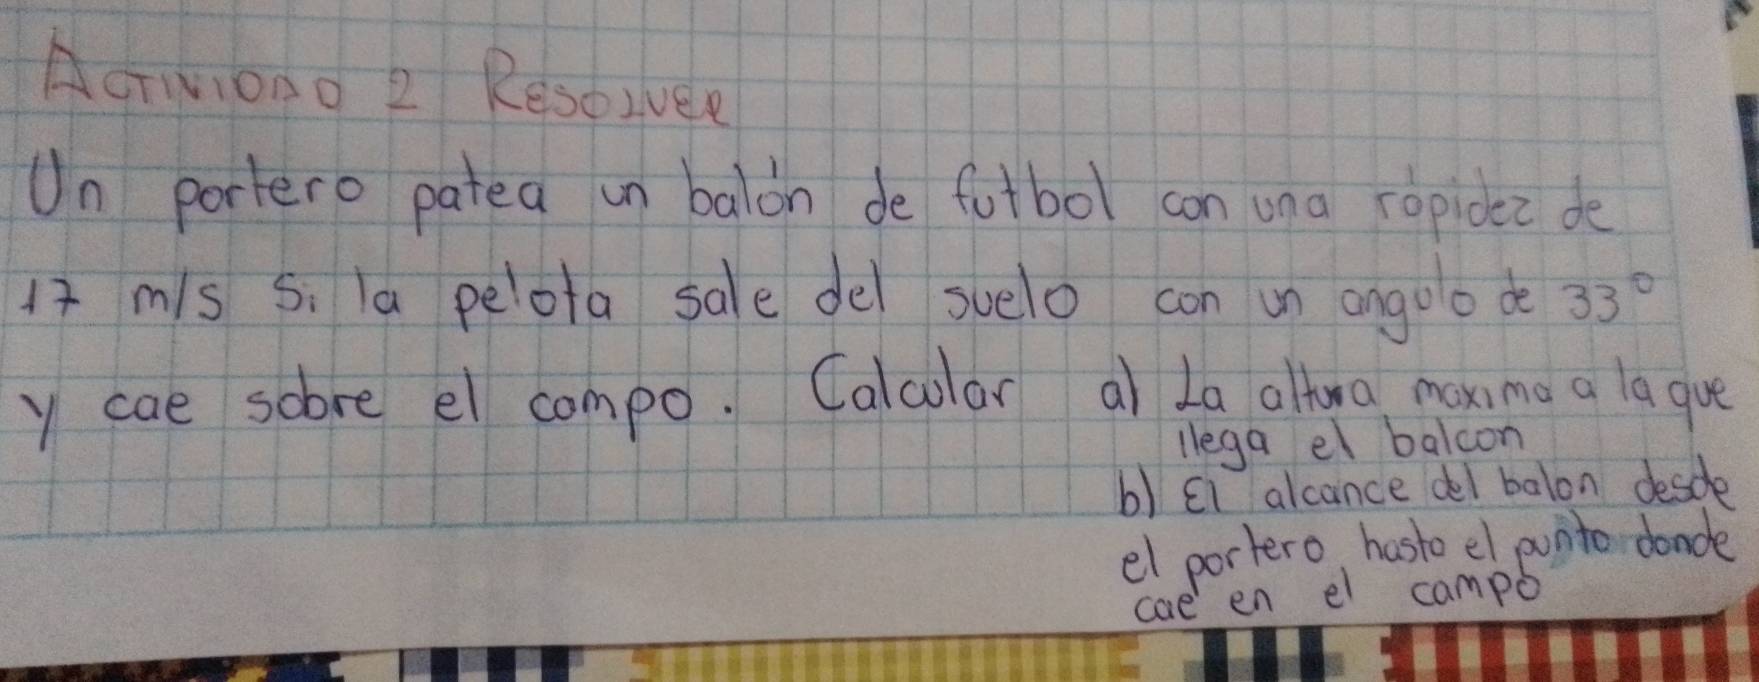 ACTIVIDAD 2 RESOLVER
Un portero patea un balón de futbol con una rápidez de
17 m/s Si la pelota sale del suelo con un angulo de 33°
y cae sobre el campo. Calcular a) La altura maxima a la que
llega el balcon
b) El alcance del balon desde
el portero hasta el punto donde
cae en el campo